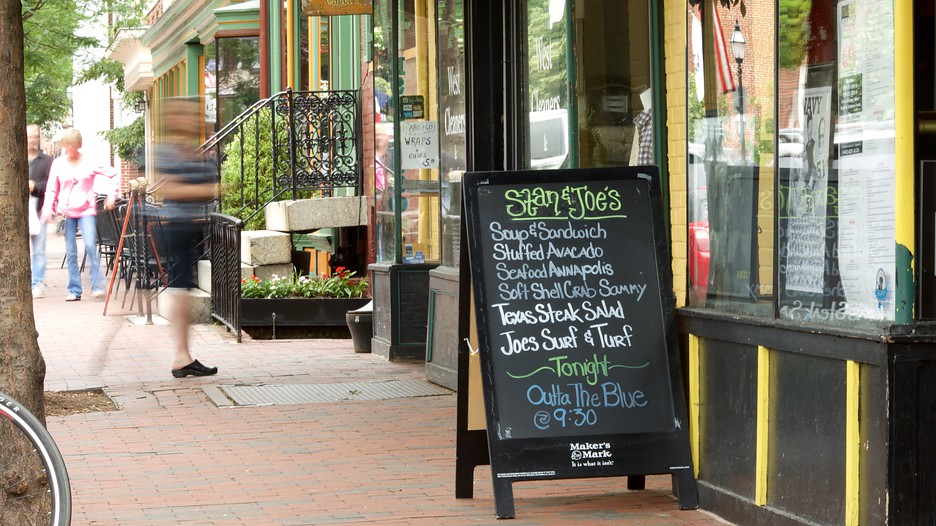 West
Cleaners
West
Cleaners
WRAPS
& CHIPS
5.00
Stan & Joe's
Soup & Sandwich
Stuffed Avacado
Seafood Annapolis
Soft Shell Crab Sammy
Texas Steak Salad
Joes Surf & Turf
Tonight
Outta The Blue
@ 9:30
Maker's
Mark
It is what it isn't.